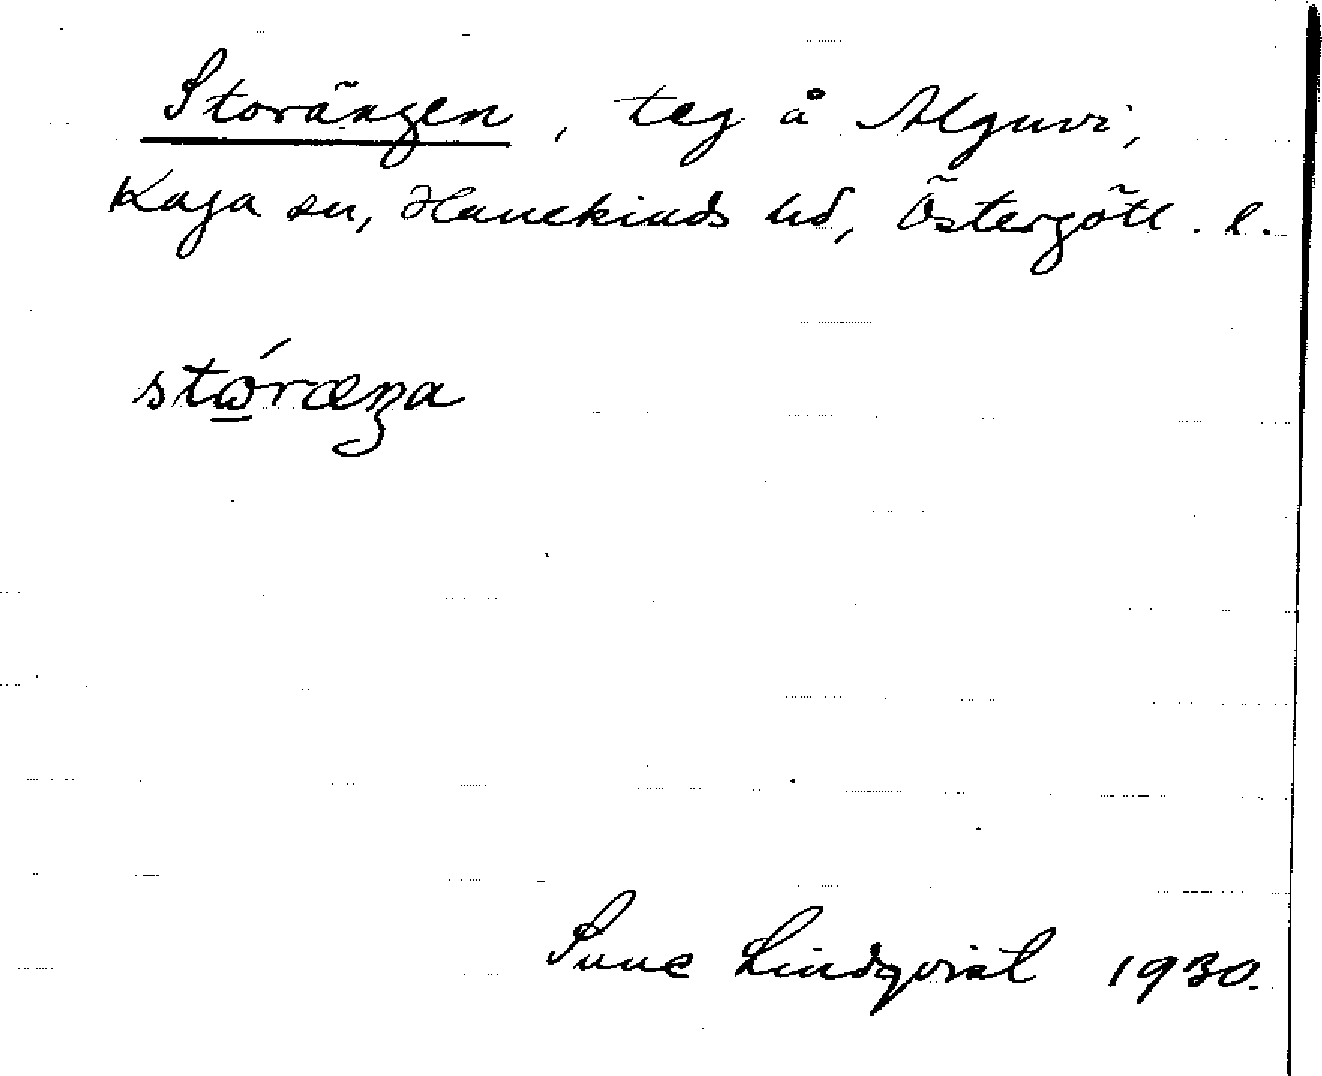 Storängen, teg å Alguvi,
Kaga sn, Hanekinds hd, Östergötl. l.
stώræŋa
Sune Lindqvist 1930.